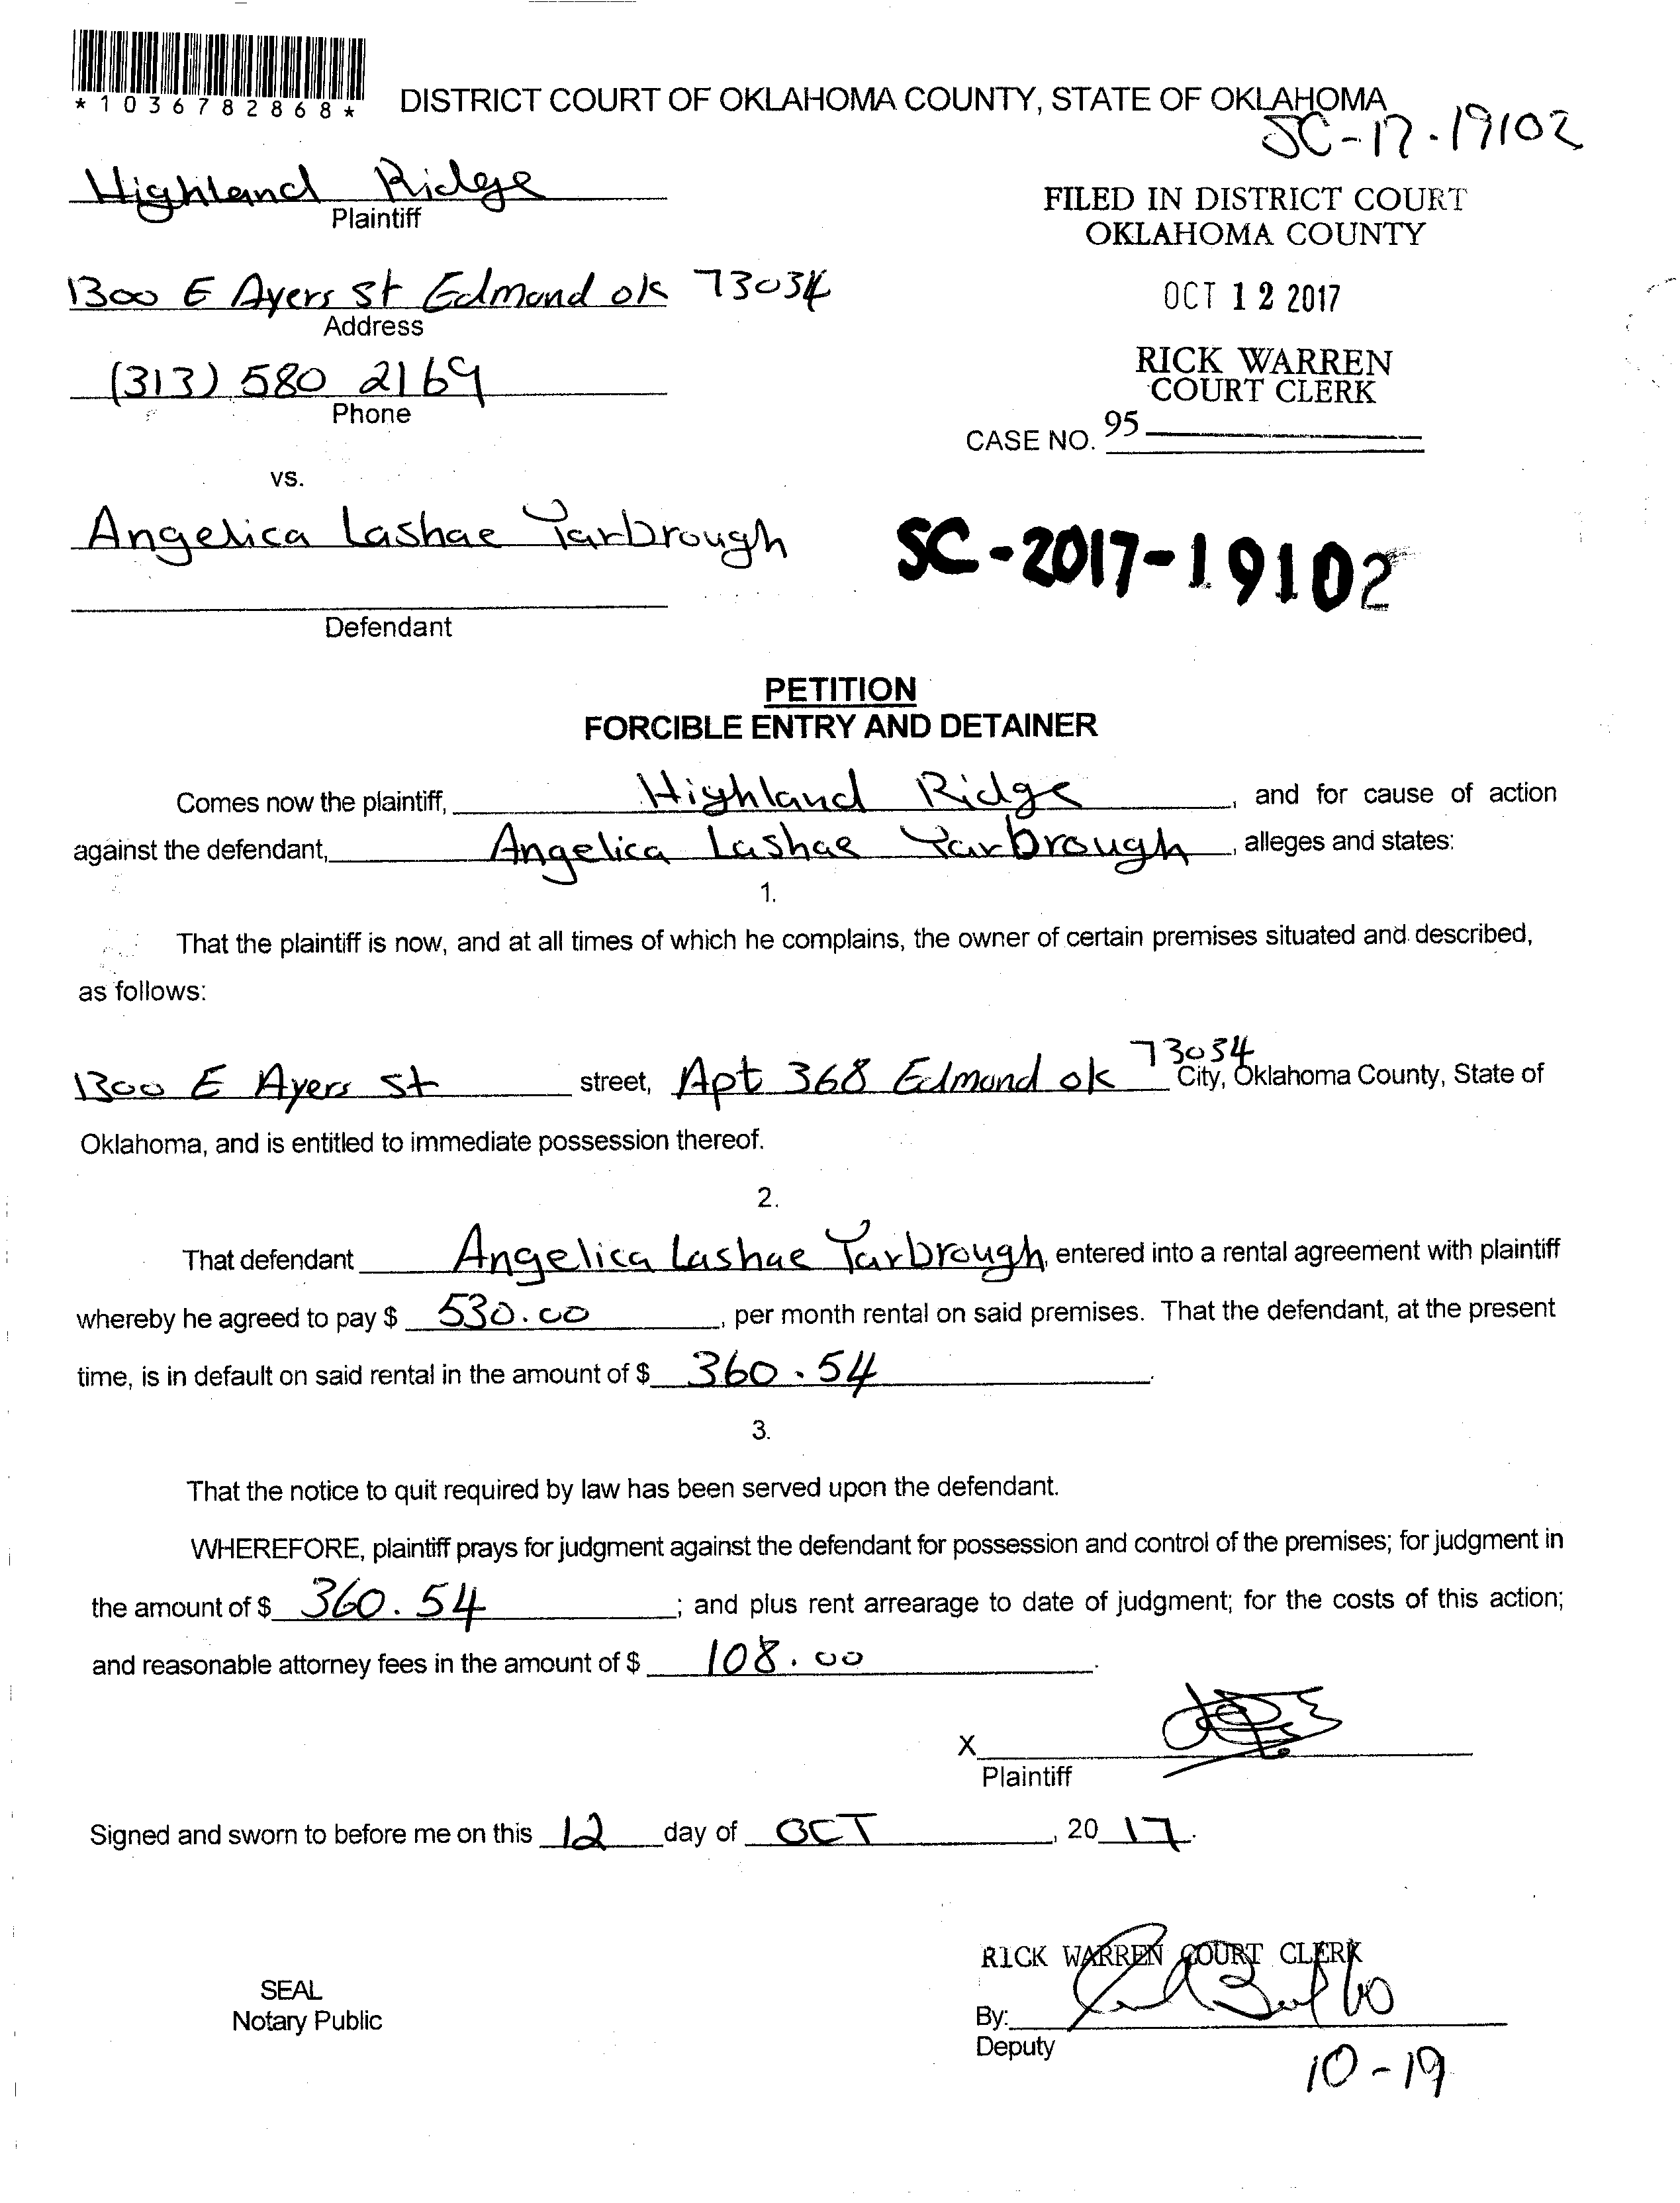 *1036782868*
DISTRICT COURT OF OKLAHOMA COUNTY, STATE OF OKLAHOMA
SC-17-19102
Highland Ridge
Plaintiff
FILED IN DISTRICT COURT
OKLAHOMA COUNTY
1300 E Ayers St Edmond ok 73034
Address
OCT 12 2017
(313) 580 2169
Phone
RICK WARREN
COURT CLERK
CASE NO. 95
vs.
Angelica Lashae Yarbrough
SC-2017-19102
Defendant
PETITION
FORCIBLE ENTRY AND DETAINER
Comes now the plaintiff, Highland Ridge, and for cause of action
against the defendant, Angelica Lashae Yarbrough, alleges and states:
1.
That the plaintiff is now, and at all times of which he complains, the owner of certain premises situated and described,
as follows:
1300 E Ayers St street, Apt 368 Edmond ok 73034 City, Oklahoma County, State of
Oklahoma, and is entitled to immediate possession thereof.
2.
That defendant Angelica Lashae Yarbrough, entered into a rental agreement with plaintiff
whereby he agreed to pay $ 530.00, per month rental on said premises. That the defendant, at the present
time, is in default on said rental in the amount of $ 360.54.
3.
That the notice to quit required by law has been served upon the defendant.
WHEREFORE, plaintiff prays for judgment against the defendant for possession and control of the premises; for judgment in
the amount of $ 360.54; and plus rent arrearage to date of judgment; for the costs of this action;
and reasonable attorney fees in the amount of $ 108.00.
X
Plaintiff
Signed and sworn to before me on this 12 day of OCT, 20 17.
RICK WARREN COURT CLERK
SEAL
Notary Public
By:
Deputy
10-19